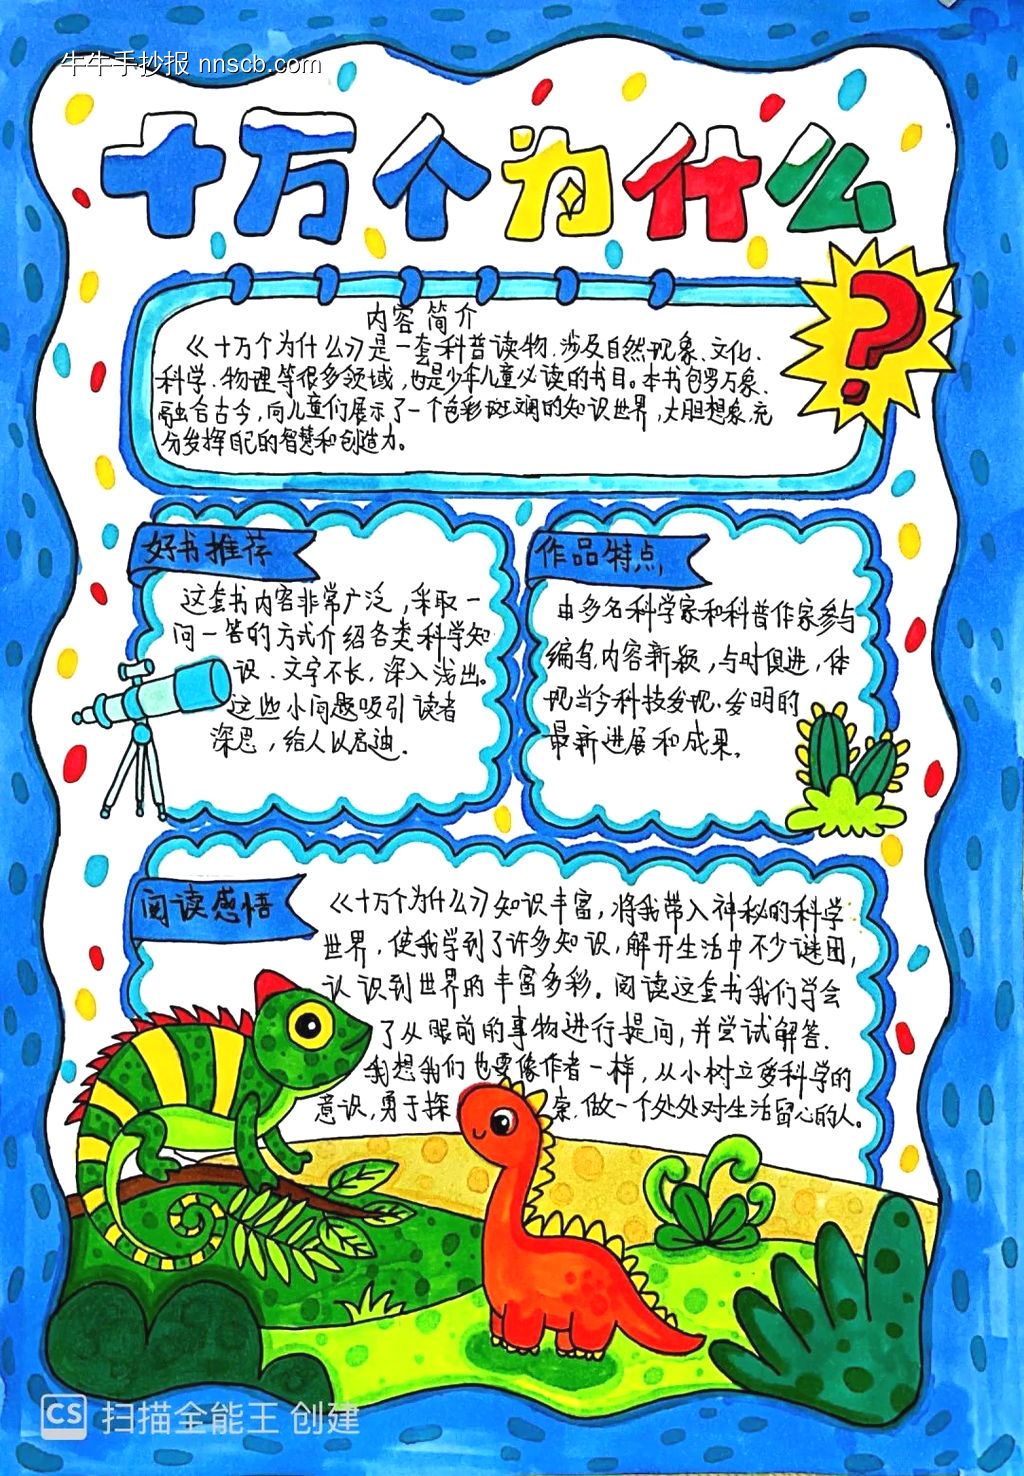 牛牛手抄报 nnscb.com
十万个为什么
?
内容简介
《十万个为什么》是一套科普读物,涉及自然现象、文化、
科学、物理等很多领域,也是少年儿童必读的书目。本书包罗万象、
融合古今,向儿童们展示了一个色彩斑斓的知识世界,大胆想象,充
分发挥自己的智慧和创造力。
好书推荐
这套书内容非常广泛,采取一
问一答的方式介绍各类科学知
识.文字不长,深入浅出。
这些小问题吸引读者
深思,给人以启迪.
作品特点,
由多名科学家和科普作家参与
编写,内容新颖,与时俱进,体
现当今科技发现、发明的
最新进展和成果。
阅读感悟
《十万个为什么》知识丰富,将我带入神秘的科学
世界,使我学到了许多知识,解开生活中不少谜团,
认识到世界的丰富多彩。阅读这套书我们学会
了从眼前的事物进行提问,并尝试解答.
我想我们也要像作者一样,从小树立爱科学的
意识,勇于探索,做一个处处对生活留心的人。
CS 扫描全能王 创建